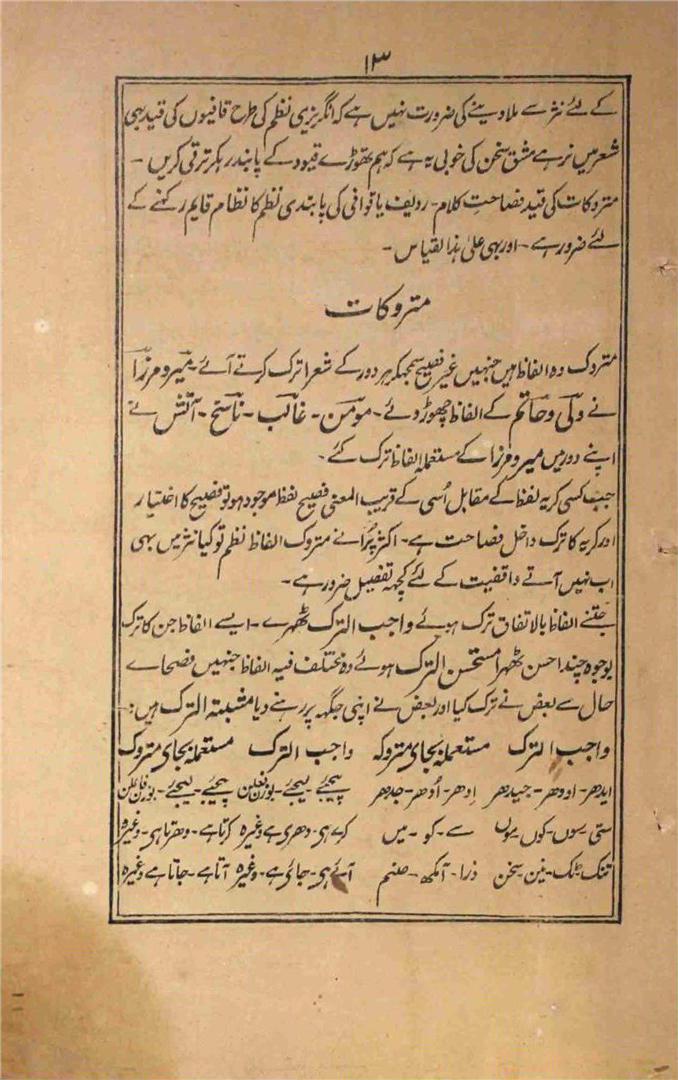 ۱۳
کے لئے نثر سے ملا دینے کی ضرورت نہیں ہے کہ انگریزی نظم کی طرح قافیوں کی قید بھی
شعر میں نرہے مشق سخن کی خوبی یہ ہے کہ ہم تھوڑے قیود کے پابند رہکر ترقی کریں ۔
متروکات کی قید فصاحت کلام ۔ ردیف یا قوافی کی پابندی نظم کا نظام قایم رکہنے کے
لئے ضرور ہے ۔ اور بہی علیٰ ہذا لقیاس ۔
متروکات
متروک وہ الفاظ ہیں جنہیں غیر فصیح سمجہکر ہر دور کے شعرا ترک کرتے آئے ۔ میر و مرزا
نے ولی و حاتم کے الفاظ چھوڑ دئے ۔ مومن ۔ غالب ۔ ناسخ ۔ آتش نے
اپنے دور میں میر و مرزا کے مستعملہ الفاظ ترک کئے ۔
جب کسی کریہ لفظ کے مقابل اُسی کے قریب المعنی فصیح لفظ موجود ہو تو فصیح کا اختیار
اور کریہ کا ترک داخل فصاحت ہے ۔ اکثر پُرانے متروک الفاظ نظم تو کیا نثر میں بہی
اب نہیں آتے واقفیت کے لئے کچہہ تفصیل ضرور ہے ۔
جتنے الفاظ بالاتفاق ترک ہوئے واجب الترک ٹھہرے ۔ ایسے الفاظ جن کا ترک
بوجوہ چند احسن ٹھہرا مستحسن الترک ہوئے وہ مختلف فیہ الفاظ جنہیں فصحاے
حال سے بعض نے ترک کیا اور بعض نے اپنی جگہہ پر رہنے دیا مشتبہ الترک ہیں :۔
واجب الترک مستعملہ بجای متروکہ واجب الترک مستعملہ بجای متروک
ایدھر ۔ اودھر ۔ جیدھر اِدھر ۔ اُدھر ۔ جدھر پیجئے لیجئے ۔ بوزن فعلین پیجیے ۔ لیجئے ۔ بوزن فاعلن
ستی ۔ سوں ۔ کوں ۔ موں سے ۔ کو ۔ میں کرے ہی ۔ دھری ہے وغیرہ کرتا ہے ۔ دھرتا ہی ۔ وغیرہ
تنک ۔ ٹک ۔ نین ۔ سخن ذرا ۔ آنکھ ۔ صنم آئے ہی ۔ جائی ہے ۔ وغیرہ آتا ہے ۔ جاتا ہے وغیرہ